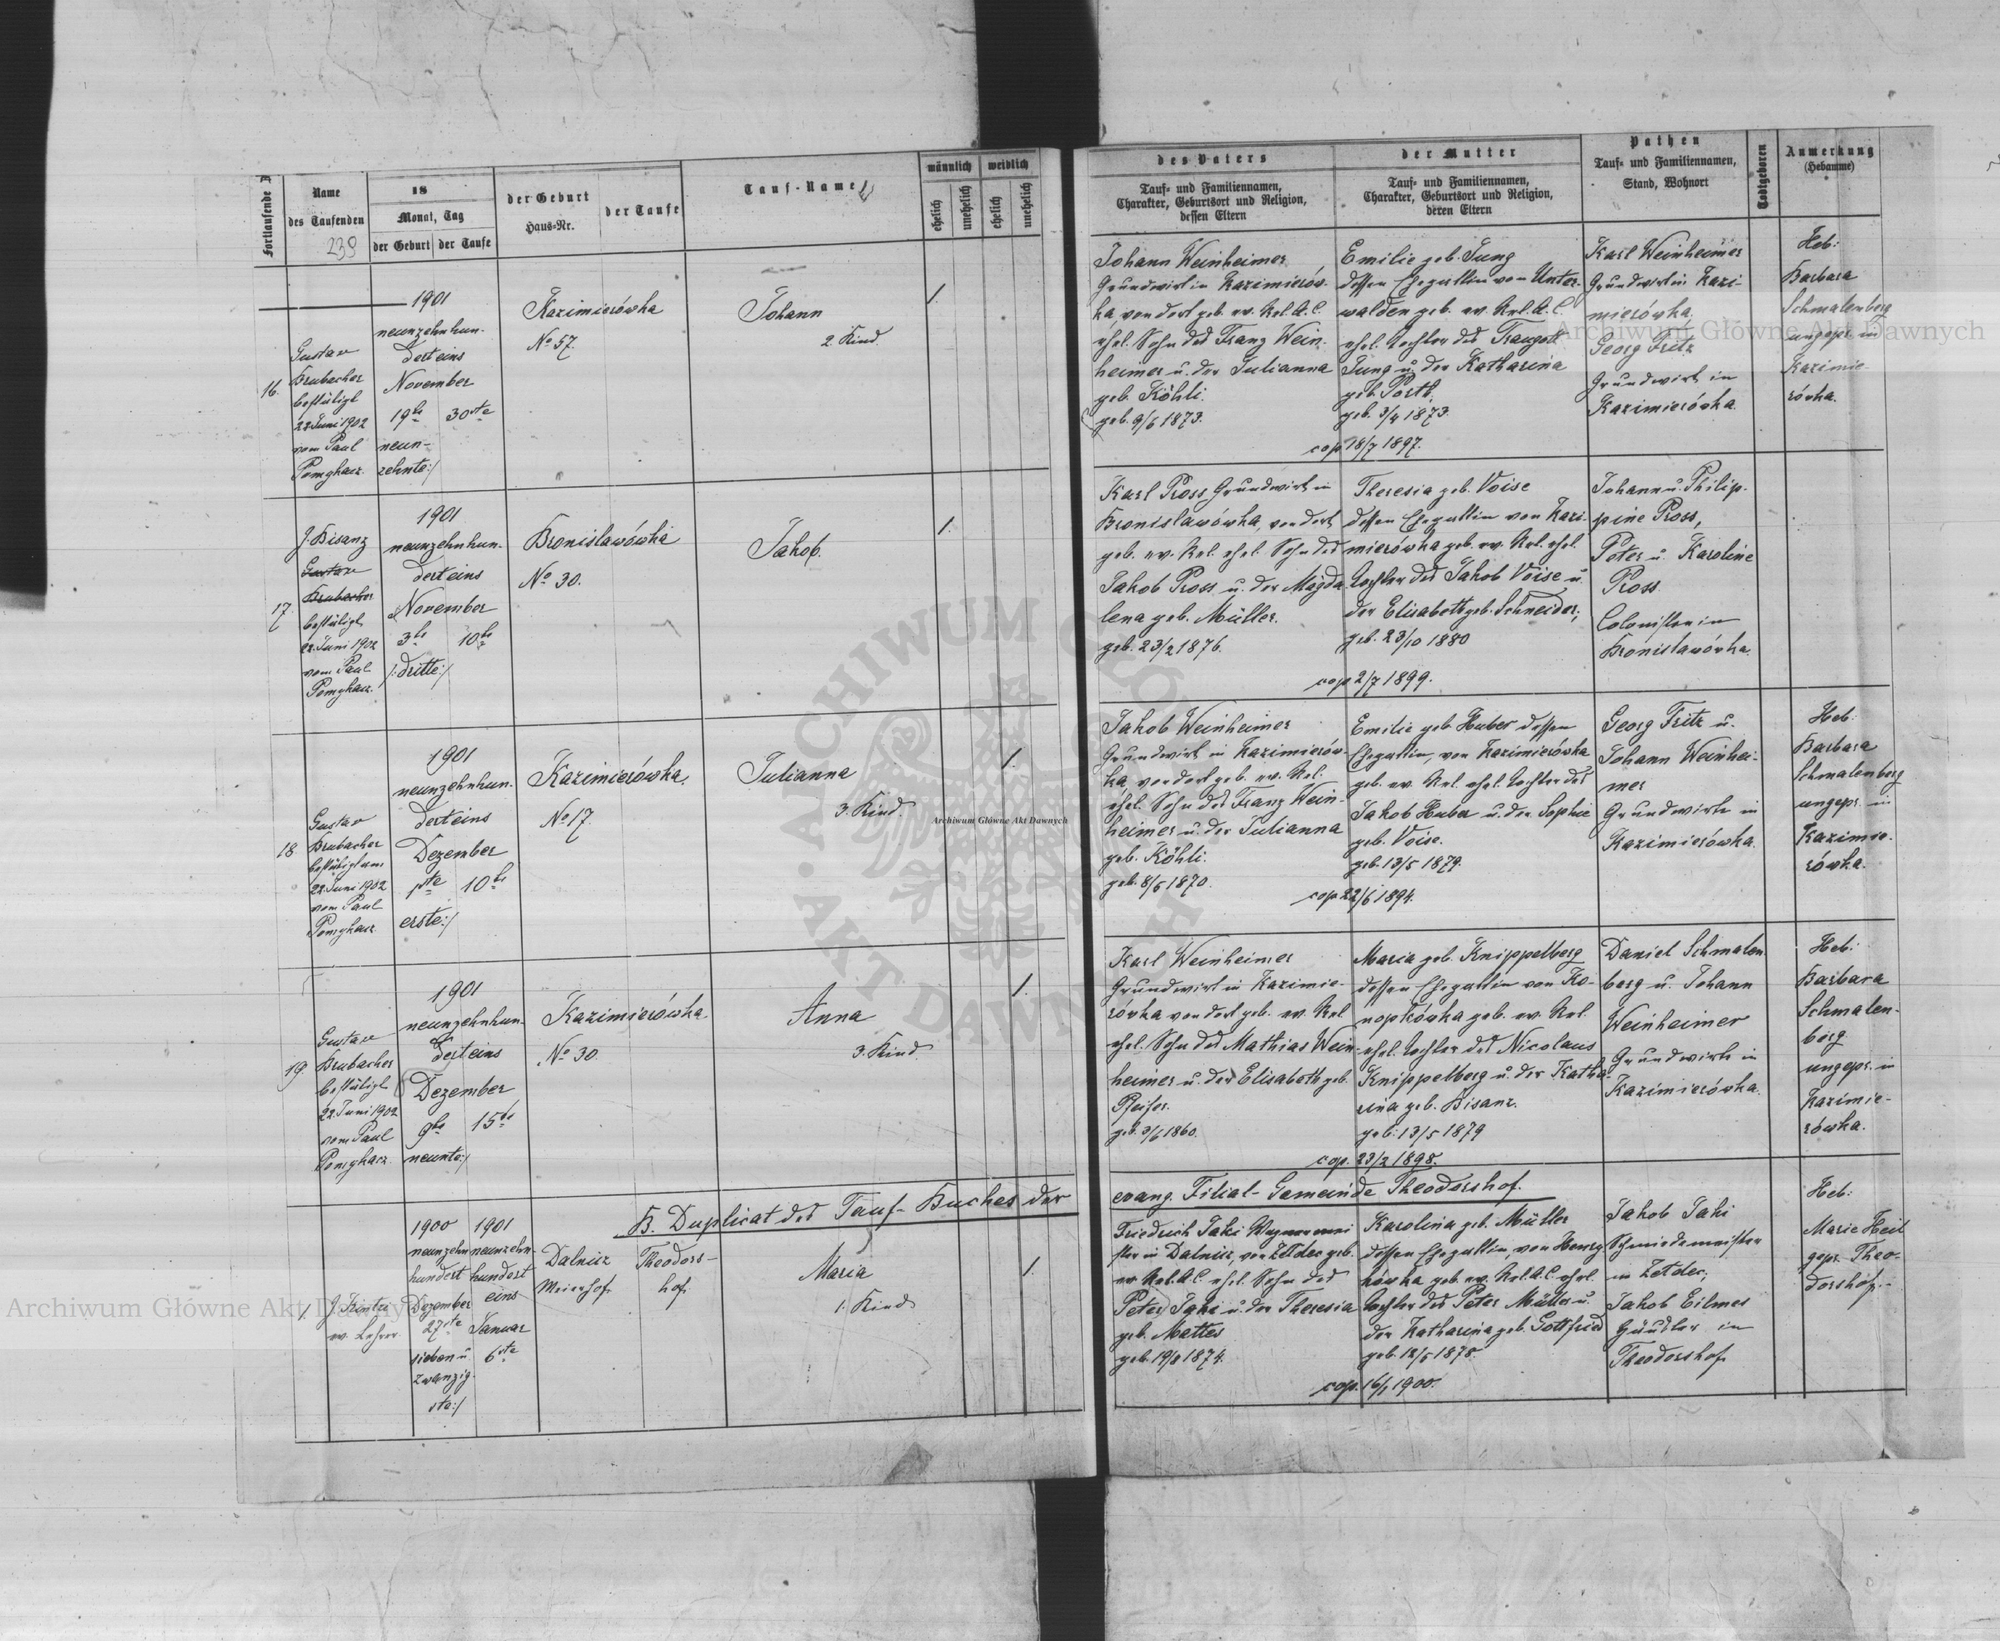 Fortlaufende
Name
des Taufenden
239
18
Monat, Tag
der Geburt
der Taufe
der Geburt
Haus-Nr.
der Taufe
Tauf-Name
männlich
weiblich
ehelich
unehelich
ehelich
unehelich
des Vaters
Tauf- und Familiennamen,
Charakter, Geburtsort und Religion,
dessen Eltern
der Mutter
Tauf- und Familiennamen,
Charakter, Geburtsort und Religion,
deren Eltern
Pathen
Tauf- und Familiennamen,
Stand, Wohnort
Todtgeboren
Anmerkung
(Hebamme)
16.
Gustav
Brubacher
bestätigt
22 Juni 1902
vom Paul
1901
neunzehnhun-
derteins
November
19te
30ste
neun-
zehnte:/
Kazimierówka
No 57.
Johann
2. Kind.
1.
Johann Weinheimer
Grundwirt in Kazimierów-
ka von dort geb. ev. Rel. A.C.
ehel. Sohn des Franz Wein-
heimer u. der Julianna
geb. Köhli.
geb. 9/6 1873.
Emilie geb. Jung
dessen Ehegattin von Unter-
walden geb. ev. Rel. A.C.
ehel. Tochter des Traugott
Jung u. der Katharina
geb. Porth.
geb. 3/4 1873.
cop 18/7 1897.
Karl Weinheimer
Grundwirt in Kazi-
mierówka,
Georg Fritz
Grundwirt in
Kazimierówka.
Heb:
Barbara
Schmalenberg
ungepr. in
Kazimie-
rówka.
17.
J. Bisanz
Gustav
Brubacher
bestätigt
22 Juni 1902
vom Paul
1901
neunzehnhun-
derteins
November
3te
10te
/:dritte:/
Bronislawówka
No 30.
Jakob.
1.
Karl Pross Grundwirt in
Bronislawówka, von dort
geb. ev. Rel. ehel. Sohn des
Jakob Pross u. der Magda-
lena geb. Müller.
geb. 23/2 1876.
Theresia geb. Voise
dessen Ehegattin von Kazi-
mierówka geb. ev. Rel. ehel.
Tochter des Jakob Voise u.
der Elisabeth geb. Schneider,
geb. 23/10 1880
cop 2/7 1899.
Johann u. Philip-
pine Pross,
Peter u. Karoline
Pross
Colonisten in
Bronislawówka.
18.
Gustav
Brubacher
bestätigt am
22 Juni 1902
vom Paul
1901
neunzehnhun-
derteins
Dezember
1ste
10te
erste:/
Kazimierówka.
No 17.
Julianna
3. Kind.
1.
Jakob Weinheimer
Grundwirt in Kazimierów-
ka, von dort geb. ev. Rel.
ehel. Sohn des Franz Wein-
heimer u. der Julianna
geb. Köhli.
geb. 8/5 1870.
Emilie geb. Huber dessen
Ehegattin, von Kazimierówka
geb. ev. Rel. ehel. Tochter des
Jakob Huber u. der Sophie
geb. Voise.
geb. 13/5 1879.
cop 22/6 1894.
Georg Fritz u.
Johann Weinhei-
mer
Grundwirte in
Kazimierówka.
Heb.
Barbara
Schmalenberg
ungepr. in
Kazimie-
rówka.
19.
Gustav
Brubacher
bestätigt
22. Juni 1902
vom Paul
1901
neunzehnhun-
derteins
Dezember
9te
15te
neunte:/
Kazimierówka.
No 30.
Anna
3. Kind
1.
Karl Weinheimer
Grundwirt in Kazimie-
rówka von dort geb. ev. Rel
ehel. Sohn des Mathias Wein-
heimer u. der Elisabeth geb.
Pfeifer.
geb. 3/6 1860.
Maria geb. Knippelberg
dessen Ehegattin von Ko-
nopkówka geb. ev. Rel.
ehel. Tochter des Nicolaus
Knippelberg u. der Katha-
rina geb. Bisanz.
geb: 13/5 1879
cop. 23/2 1898.
Daniel Schmalen-
berg u. Johann
Weinheimer
Grundwirte in
Kazimierówka.
Heb:
Barbara
Schmalen-
berg
ungepr. in
Kazimie-
rówka.
B. Duplicat des Tauf-Buches der
evang. Filial-Gemeinde Theodorshof.
1.
J. Kintzi
ev. Lehrer
1900
neunzehn
hundert
Dezember
27ste
sieben u.
zwanzig-
ste:/
1901
neunzehn-
hundert
eins
Januar
6ste
Dalnicz
Meierhof.
Theodors-
hof.
Maria
1. Kind
1.
Friedrich Jaki
in Dalnicz, von Zetdec geb.
ev. Rel. A.C. ehel. Sohn des
Peter Jaki u. der Theresia
geb. Mattes
geb. 19/8 1874.
Karolina geb. Müller
dessen Ehegattin, von
geb. ev. Rel. A.C. ehel.
Tochter des Peter Müller u.
der Katharina geb. Gottfried
geb. 18/5 1878.
cop. 16/1 1900.
Jakob Jaki
Schmiedemeister
in Zetdec,
Jakob Eilmes
in
Theodorshof.
Heb:
Marie Heil
gepr. Theo-
dorshof.
Archiwum Główne Akt Dawnych
Archiwum Główne Akt Dawnych
Archiwum Główne Akt Dawnych